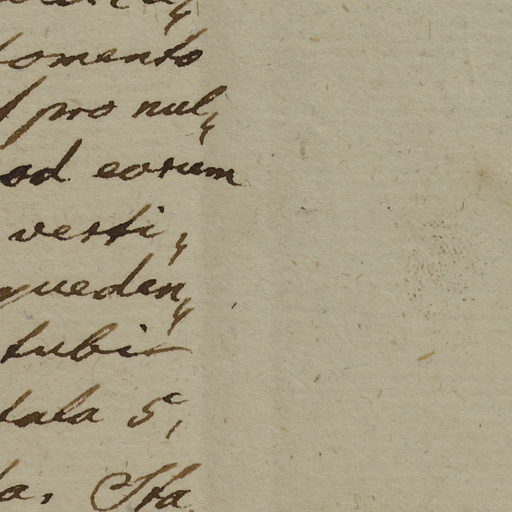 omento
pro nul,
od eorum
verti,
queden,
tubi
tala 5,
la. Ita